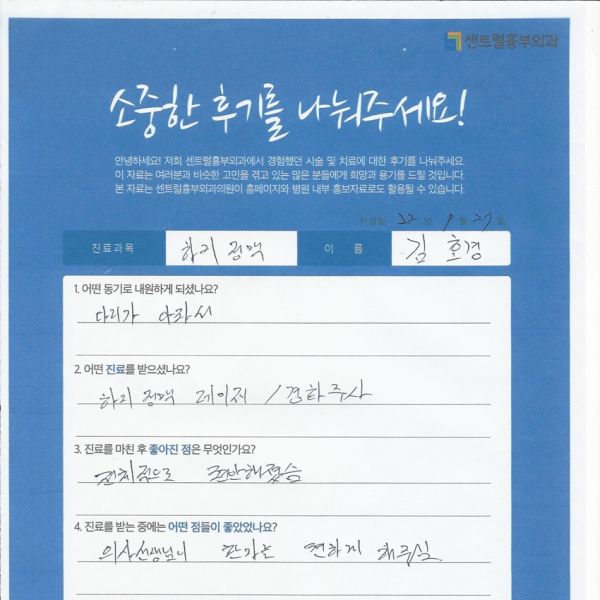 센트럴흉부외과
소중한 후기를 나눠주세요!
안녕하세요! 저희 센트럴흉부외과에서 경험했던 시술 및 치료에 대한 후기를 나눠주세요.
이 자료는 여러분과 비슷한 고민을 겪고 있는 많은 분들에게 희망과 용기를 드릴 것입니다.
본 자료는 센트럴흉부외과의원이 홈페이지와 병원 내부 홍보자료로도 활용될 수 있습니다.
작성일 22 년 9 월 27 일
진료과목 하지정맥 이 름 김 호경
1. 어떤 동기로 내원하게 되셨나요?
다리가 아파서
2. 어떤 진료를 받으셨나요?
하지정맥 레이저 / 경화주사
3. 진료를 마친 후 좋아진 점은 무엇인가요?
전체적으로 편안해졌음
4. 진료를 받는 중에는 어떤 점들이 좋았었나요?
의사선생님이 편하게 해주심